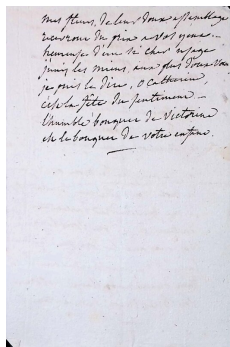 mes fleurs, de leur doux assemblage
recevront du prix a vos yeux...
heureuse d'un si cher
j'unis les miens, aux plus doux vœux
je puis le dire, o Catherine
c'est la fête du sentiment —
l'humble bouquet de Victorine
est le bouquet de votre enfant.